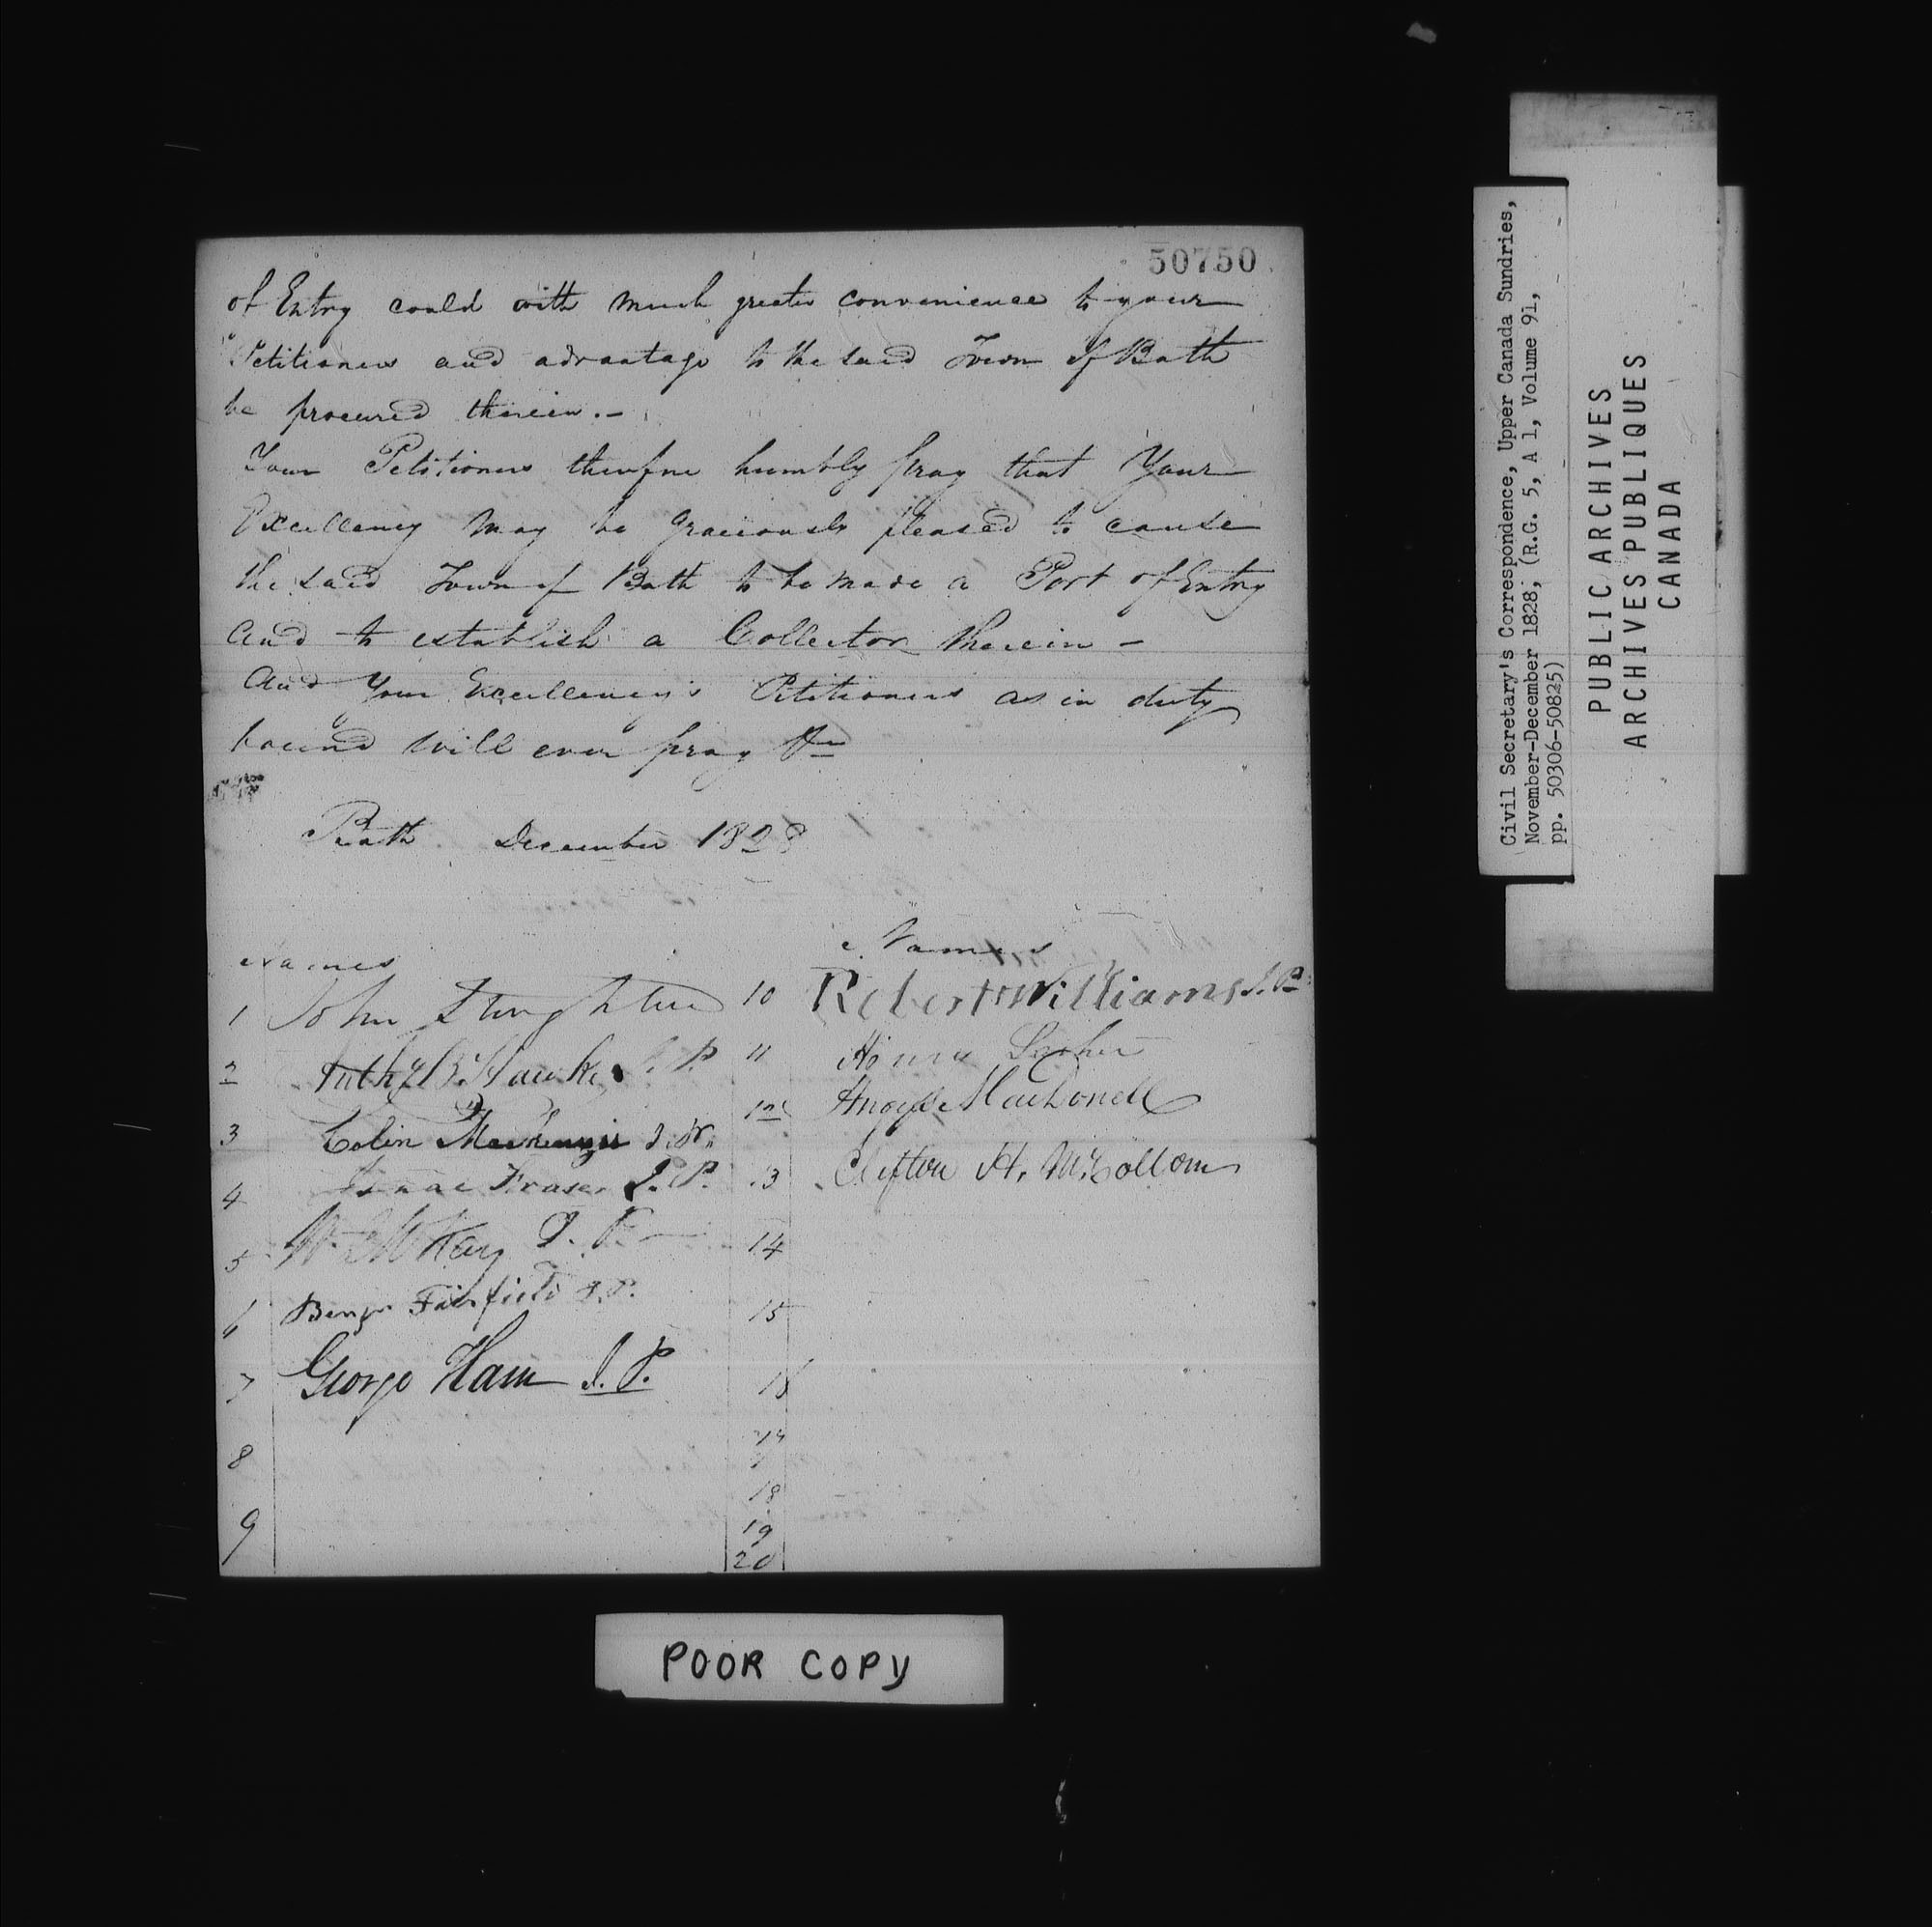 50750
of Entry could with much greater convenience to your
Petitioners and advantage to the said Town of Bath
be procured therein. –
Your Petitioners therefore humbly pray that Your
Excellency may be graciously pleased to cause
the said Town of Bath to be made a Port of Entry
and to establish a Collector therein –
And Your Excellency's Petitioners as in duty
bound will ever pray &c
Bath December 1828
Names
1 John
2 B. Hawke J. P.
3 Colin Mackenzie J. P.
4 Isaac Fraser J. P.
5 W. McKay J. P.
6 Benjn Fairfield J. P.
7 George Ham J. P.
8
9
Names
10 Robert Williams J. P.
11 Lasher
12 Angus MacDonell
13 Clifton H. McCollom
14
15
16
17
18
19
20
POOR COPY
Civil Secretary's Correspondence, Upper Canada Sundries,
November-December 1828; (R.G. 5, A 1, Volume 91,
pp. 50306-50825)
PUBLIC ARCHIVES
ARCHIVES PUBLIQUES
CANADA